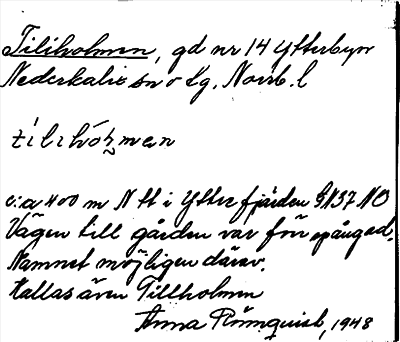 Tiliholmen, gd nr 14 Ytterbyn
Nederkalix sn o tg, Norrb. l
tílɩhól̥mɐn
c:a 400 m N tt i Ytterfjärden G N37 NO
Vägen till gården var förr spångad.
Namnet möjligen därav.
Kallas även Tillholmen
Anna Rönnquist, 1948